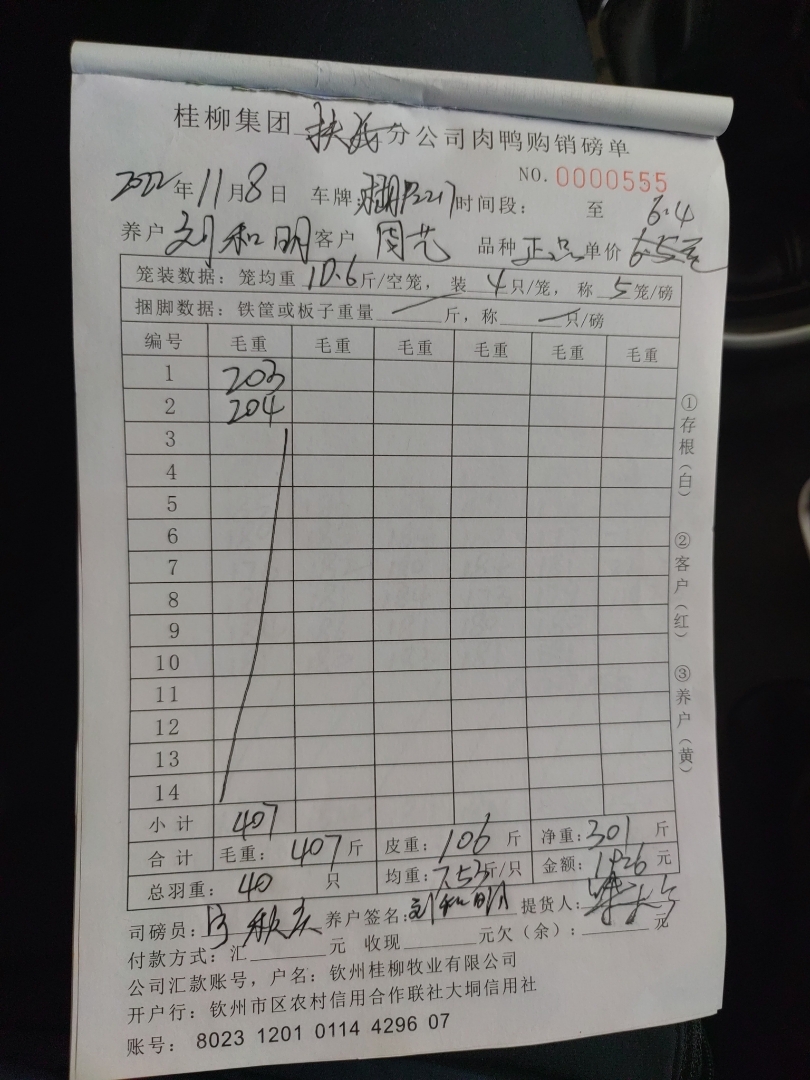 桂柳集团 扶 分公司肉鸭购销磅单
NO. 0000555
2022年11月8日 车牌: 时间段: 至 6.4
养户 刘和明 客户 周艺 品种 正品 单价 6.5元
笼装数据：笼均重 10.6 斤/空笼， 装 4 只/笼， 称 5 笼/磅
捆脚数据：铁筐或板子重量 斤，称 只/磅
编号 毛重 毛重 毛重 毛重 毛重 毛重
1 203
2 204
3
4
5
6
7
8
9
10
11
12
13
14
小计 407
合计 毛重：407斤 皮重：106 斤 净重：301 斤
总羽重： 40 只 均重：7.53斤/只 金额：1926 元
司磅员： 养户签名：刘和明 提货人：
付款方式：汇 元 收现 元欠（余）： 元
公司汇款账号，户名：钦州桂柳牧业有限公司
开户行：钦州市区农村信用合作联社大垌信用社
账号： 8023 1201 0114 4296 07
①存根（白）
②客户（红）
③养户（黄）